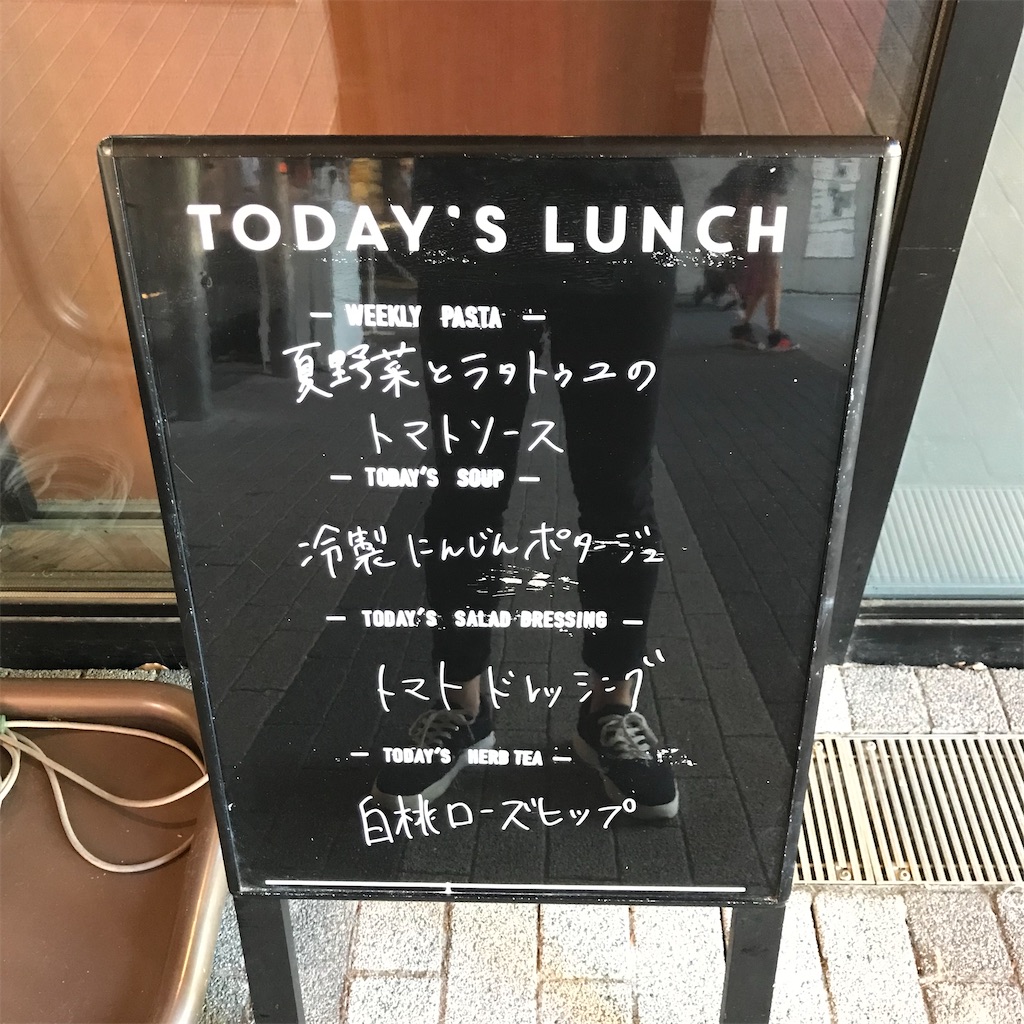 TODAY'S LUNCH
— WEEKLY PASTA —
夏野菜とラタトゥユの
トマトソース
— TODAY'S SOUP —
冷製 にんじんポタージュ
— TODAY'S SALAD DRESSING —
トマトドレッシング
— TODAY'S HERB TEA —
白桃ローズヒップ